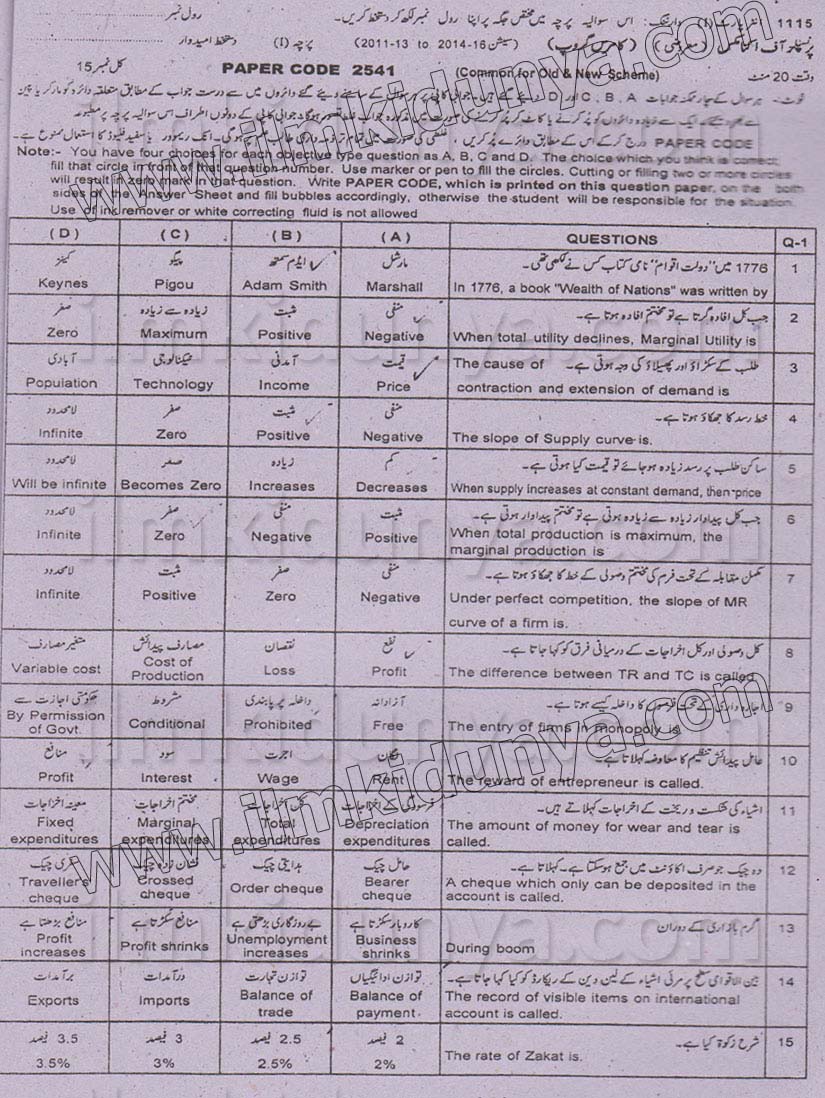 1115 انٹر پارٹ (I) وارننگ: اس سوالیہ پرچہ میں مختص جگہ پر اپنا رول نمبر لکھ کر دستخط کریں۔ رول نمبر
پرنسپلز آف اکنامکس (معروضی) (کامرس گروپ) (سیشن 2011-13 to 2014-16) پرچہ (I) دستخط امیدوار
وقت 20 منٹ (Common for Old & New Scheme) PAPER CODE 2541 کل نمبر 15
Note:- You have four choices for each objective type question as A, B, C and D. The choice which you think is correct;
fill that circle in front of that question number. Use marker or pen to fill the circles. Cutting or filling two or more circles
will result in zero mark in that question. Write PAPER CODE, which is printed on this question paper, on the both
sides of the Answer Sheet and fill bubbles accordingly, otherwise the student will be responsible for the situation.
Use of ink remover or white correcting fluid is not allowed
(D) (C) (B) (A) QUESTIONS Q-1
کینز پیگو ایڈم سمتھ مارشل 1776 میں "دولت اقوام" نامی کتاب کس نے لکھی تھی۔ 1
Keynes Pigou Adam Smith Marshall In 1776, a book "Wealth of Nations" was written by
صفر زیادہ سے زیادہ مثبت منفی جب کل افادہ گرتا ہے تو مختتم افادہ ہوتا ہے۔ 2
Zero Maximum Positive Negative When total utility declines, Marginal Utility is
آبادی ٹیکنالوجی آمدنی قیمت The cause of طلب کے سکڑاؤ اور پھیلاؤ کی وجہ ہوتی ہے۔ 3
Population Technology Income Price contraction and extension of demand is
لامحدود صفر مثبت منفی خط رسد کا جھکاؤ ہوتا ہے۔ 4
Infinite Zero Positive Negative The slope of Supply curve is.
لامحدود صفر زیادہ کم ساکن طلب پر رسد زیادہ ہو جائے تو قیمت کیا ہوتی ہے۔ 5
Will be infinite Becomes Zero Increases Decreases When supply increases at constant demand, then price
لامحدود صفر منفی مثبت جب کل پیداوار زیادہ سے زیادہ ہوتی ہے تو مختتم پیداوار ہوتی ہے۔ 6
Infinite Zero Negative Positive When total production is maximum, the
marginal production is
لامحدود مثبت صفر منفی مکمل مقابلہ کے تحت فرم کی مختتم وصولی کے خط کا جھکاؤ ہوتا ہے۔ 7
Infinite Positive Zero Negative Under perfect competition, the slope of MR
curve of a firm is.
متغیر مصارف مصارف پیدائش نقصان نفع کل وصولی اور کل اخراجات کے درمیانی فرق کو کہا جاتا ہے۔ 8
Variable cost Cost of Production Loss Profit The difference between TR and TC is called
حکومتی اجازت سے مشروط داخلہ پر پابندی آزادانہ اجارہ داری کے تحت فرموں کا داخلہ کیسے ہوتا ہے۔ 9
By Permission of Govt. Conditional Prohibited Free The entry of firms in monopoly is
منافع سود اجرت لگان عامل پیدائش تنظیم کا معاوضہ کہلاتا ہے۔ 10
Profit Interest Wage Rent The reward of entrepreneur is called.
معینہ اخراجات مختتم اخراجات کل اخراجات فرسودگی کے اخراجات اشیاء کی شکست و ریخت کے اخراجات کہلاتے ہیں۔ 11
Fixed expenditures Marginal expenditures Total expenditures Depreciation expenditures The amount of money for wear and tear is
called.
سفری چیک نشان زدہ چیک ہدایتی چیک حامل چیک وہ چیک جو صرف اکاؤنٹ میں جمع ہو سکتا ہے۔ کہلاتا ہے۔ 12
Traveller's cheque Crossed cheque Order cheque Bearer cheque A cheque which only can be deposited in the
account is called.
منافع بڑھتا ہے منافع سکڑتا ہے بے روزگاری بڑھتی ہے کاروبار سکڑتا ہے گرم بازاری کے دوران 13
Profit increases Profit shrinks Unemployment increases Business shrinks During boom
برآمدات درآمدات توازن تجارت توازن ادائیگیاں بین الاقوامی سطح پر مرئی اشیاء کے لین دین کے ریکارڈ کو کیا کہا جاتا ہے۔ 14
Exports Imports Balance of trade Balance of payment The record of visible items on international
account is called.
3.5 فیصد 3 فیصد 2.5 فیصد 2 فیصد شرح زکوٰۃ کیا ہے۔ 15
3.5% 3% 2.5% 2% The rate of Zakat is.
www.ilmkidunya.com
www.ilmkidunya.com
ilmkidunya.com